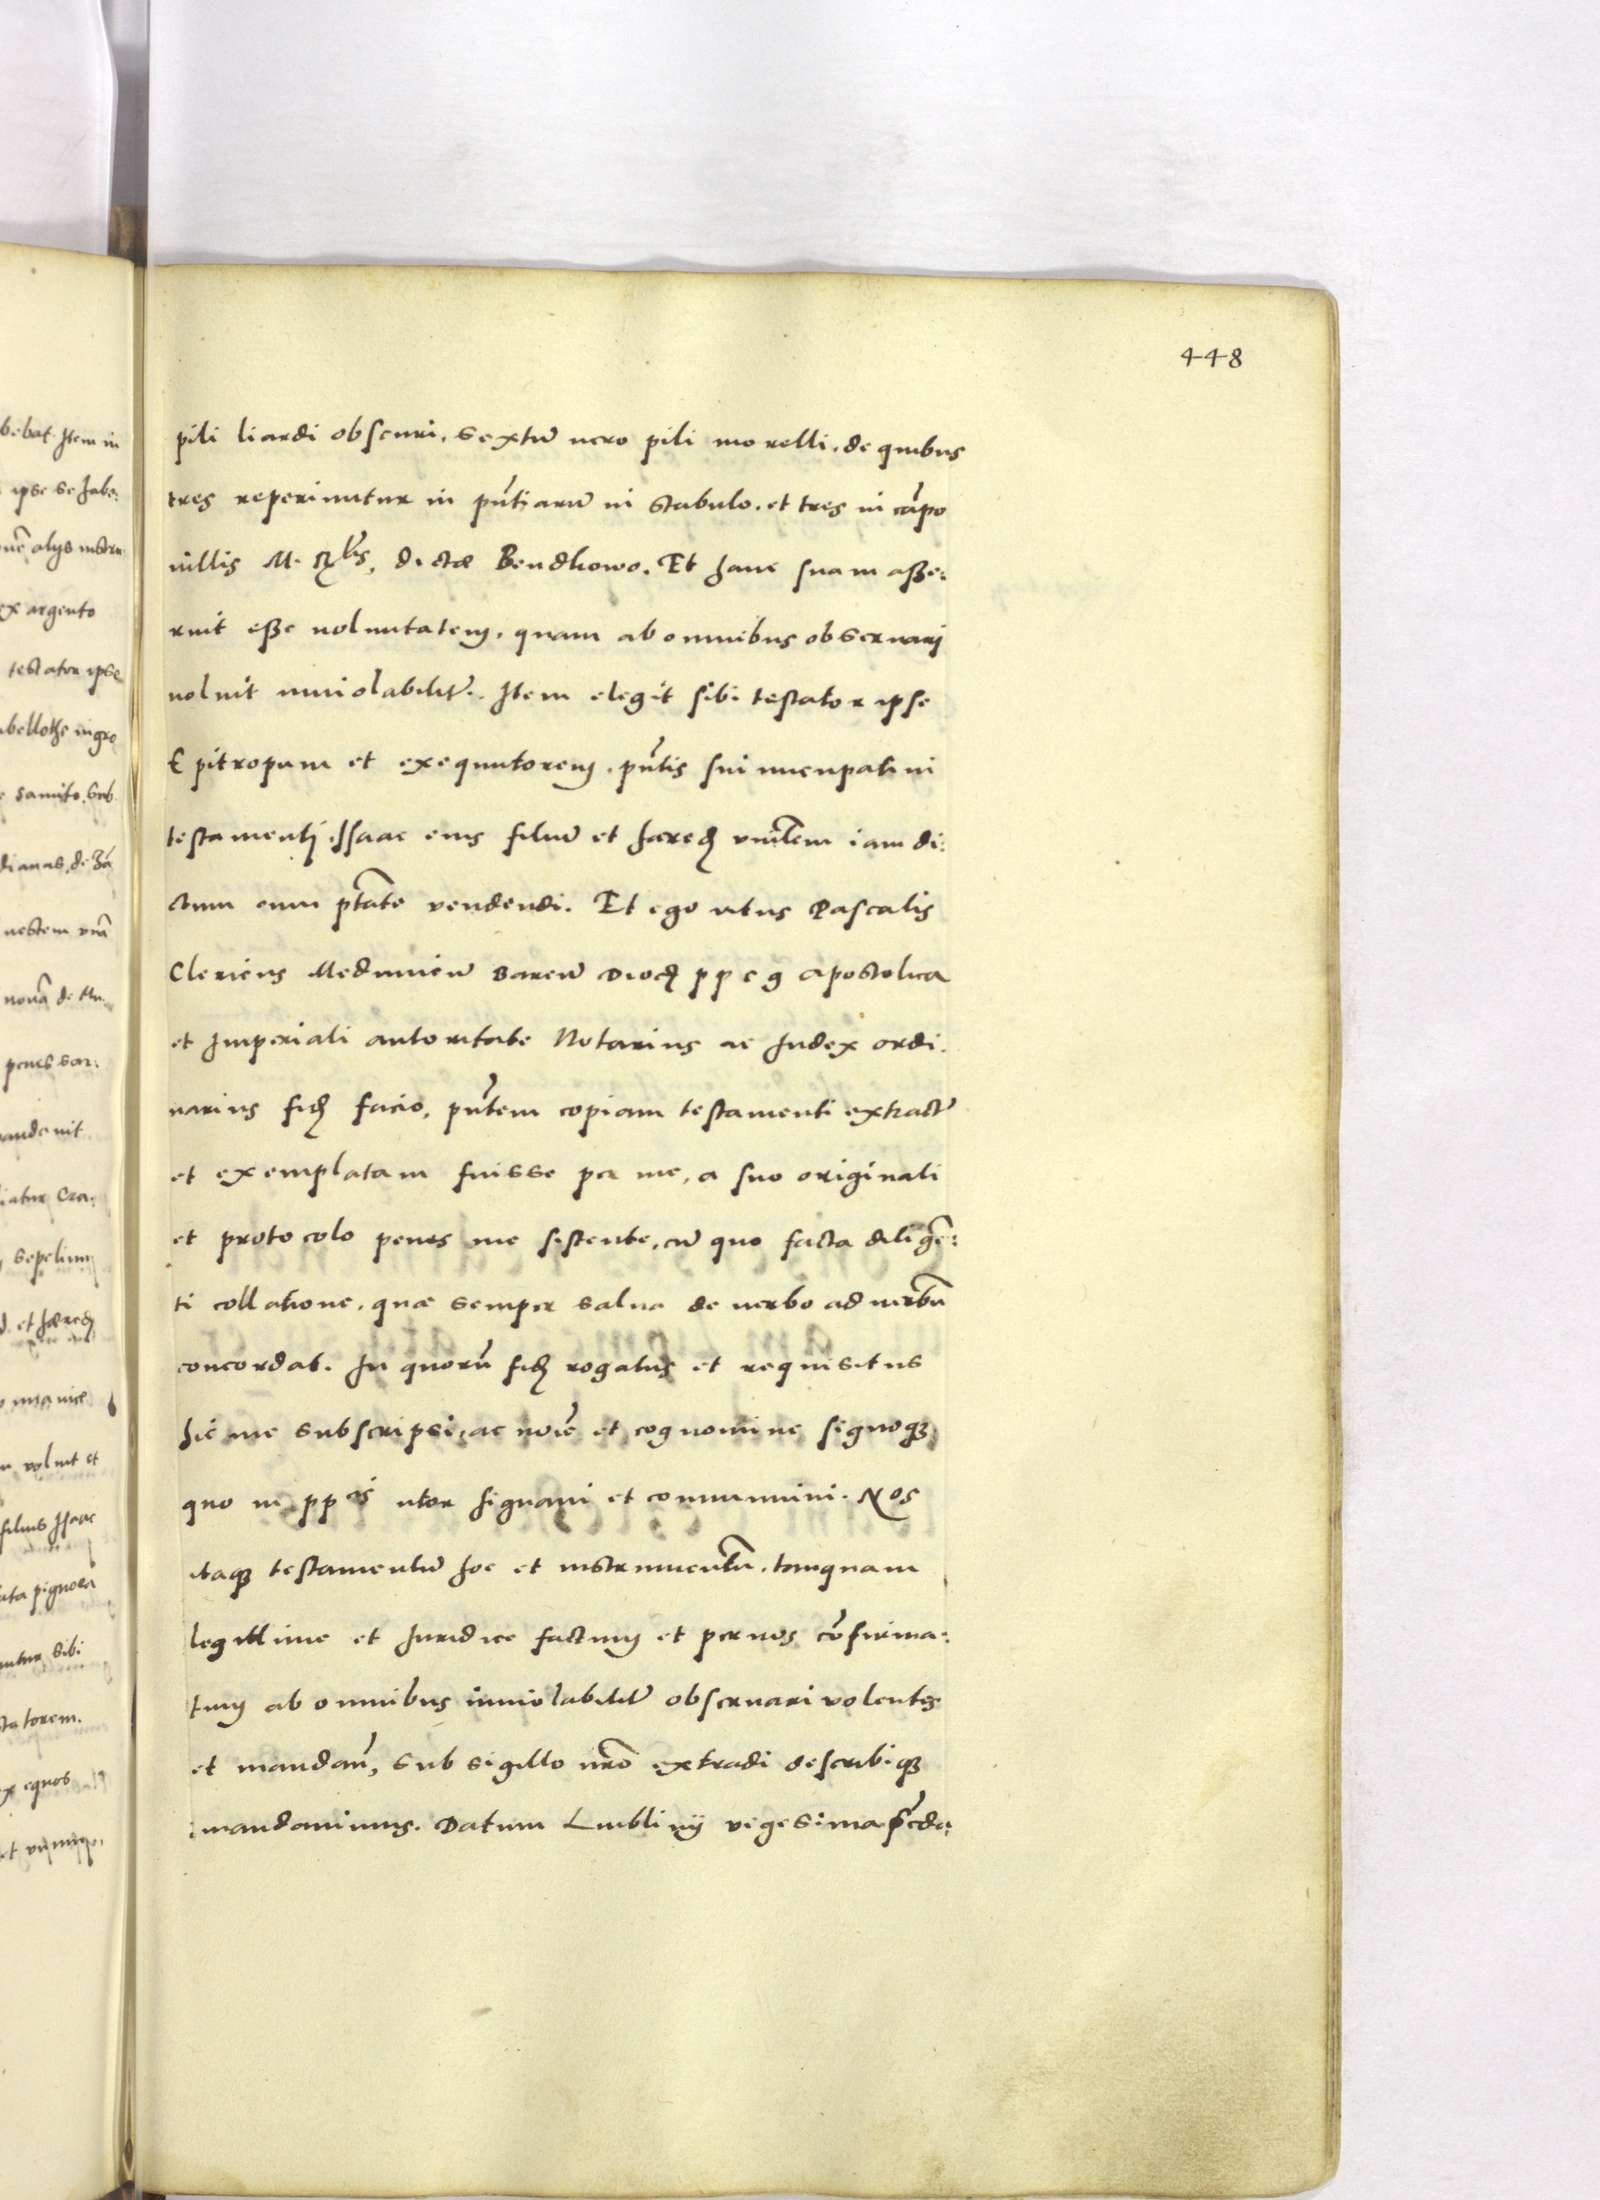 448
pili liardi obscuri, sextũ uero pili morelli, de quibus
tres reperiuntur in pñtiarũ in stabulo, et tres in cãpo
uillis M. Rglis, dictæ Bendkowo. Et hanc suam asse:
ruit esse uoluntatem, quam ab omnibus obseruarj
uoluit inuiolabilitr̃. Item elegit sibi testator ipse
Epitropum et exequutorem, pñtis sui nuncupatiui
testamentj Isaac eius filiũ et hæred vniũlem iam di:
ctum cum ptãte vendendi. Et ego vitus Pascalis
Clericus Medunieñ Bareñ Dioc pp e g apostolica
et Imperiali autoritate Notarius ac Iudex ordi:
narius fid facio, pñtem copiam testamenti extractã
et exemplatam fuisse per me, a suo originali
et protocolo penes me sistente, cũ quo facta diligẽ:
ti collatione, quæ semper salua de uerbo ad uerbũ
concordat. In quorũ fid rogatus et requisitus
hic me subscripsi, ac noiẽ et cognomine signoq3
quo in ppcis utor signaui et communiui. Nos
itaq3 testamentũ hoc et instrumentũ, tanquam
legittime et Iuridice factum et per nos cõfirma:
tum ab omnibus inuiolabilitr̃ obseruari volentes
et mandañ, sub sigillo nr̃o extradi describiq3
mandauimus. Datum Lublinij vigesima scđa